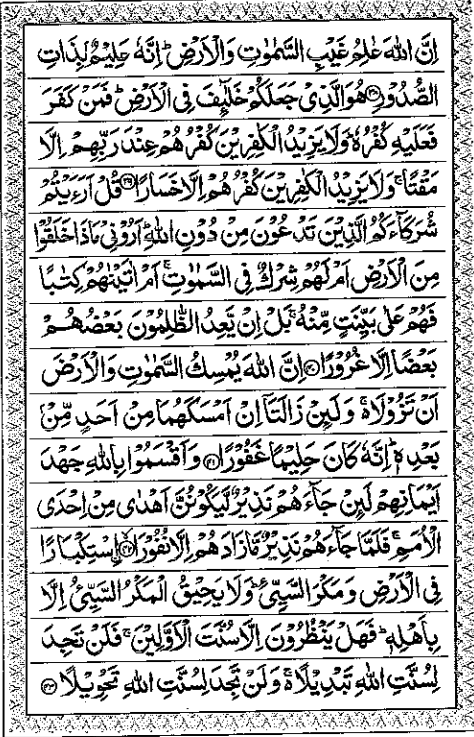 اِنَّ اللهَ عٰلِمُ غَيْبِ السَّمٰوٰتِ وَالْاَرْضِ ؕ اِنَّهٗ عَلِيْمٌۢ بِذَاتِ
الصُّدُوْرِ ۝۳۸ هُوَ الَّذِيْ جَعَلَكُمْ خَلٰٓئِفَ فِي الْاَرْضِ ؕ فَمَنْ كَفَرَ
فَعَلَيْهِ كُفْرُهٗ ؕ وَلَا يَزِيْدُ الْكٰفِرِيْنَ كُفْرُهُمْ عِنْدَ رَبِّهِمْ اِلَّا
مَقْتًا ۚ وَلَا يَزِيْدُ الْكٰفِرِيْنَ كُفْرُهُمْ اِلَّا خَسَارًا ۝۳۹ قُلْ اَرَءَيْتُمْ
شُرَكَآءَكُمُ الَّذِيْنَ تَدْعُوْنَ مِنْ دُوْنِ اللهِ ؕ اَرُوْنِيْ مَاذَا خَلَقُوْا
مِنَ الْاَرْضِ اَمْ لَهُمْ شِرْكٌ فِي السَّمٰوٰتِ ۚ اَمْ اٰتَيْنٰهُمْ كِتٰبًا
فَهُمْ عَلٰى بَيِّنَتٍ مِّنْهُ ۚ بَلْ اِنْ يَّعِدُ الظّٰلِمُوْنَ بَعْضُهُمْ
بَعْضًا اِلَّا غُرُوْرًا ۝۴۰ اِنَّ اللهَ يُمْسِكُ السَّمٰوٰتِ وَالْاَرْضَ
اَنْ تَزُوْلَا ۚ۬ وَلَئِنْ زَالَتَاۤ اِنْ اَمْسَكَهُمَا مِنْ اَحَدٍ مِّنْۢ
بَعْدِهٖ ؕ اِنَّهٗ كَانَ حَلِيْمًا غَفُوْرًا ۝۴۱ وَاَقْسَمُوْا بِاللهِ جَهْدَ
اَيْمَانِهِمْ لَئِنْ جَآءَهُمْ نَذِيْرٌ لَّيَكُوْنُنَّ اَهْدٰى مِنْ اِحْدَى
الْاُمَمِ ۚ فَلَمَّا جَآءَهُمْ نَذِيْرٌ مَّا زَادَهُمْ اِلَّا نُفُوْرًا ۝۴۲ اِسْتِكْبَارًا
فِي الْاَرْضِ وَمَكْرَ السَّيِّئِ ؕ وَلَا يَحِيْقُ الْمَكْرُ السَّيِّئُ اِلَّا
بِاَهْلِهٖ ؕ فَهَلْ يَنْظُرُوْنَ اِلَّا سُنَّتَ الْاَوَّلِيْنَ ۚ فَلَنْ تَجِدَ
لِسُنَّتِ اللهِ تَبْدِيْلًا ۚ۬ وَلَنْ تَجِدَ لِسُنَّتِ اللهِ تَحْوِيْلًا ۝۴۳